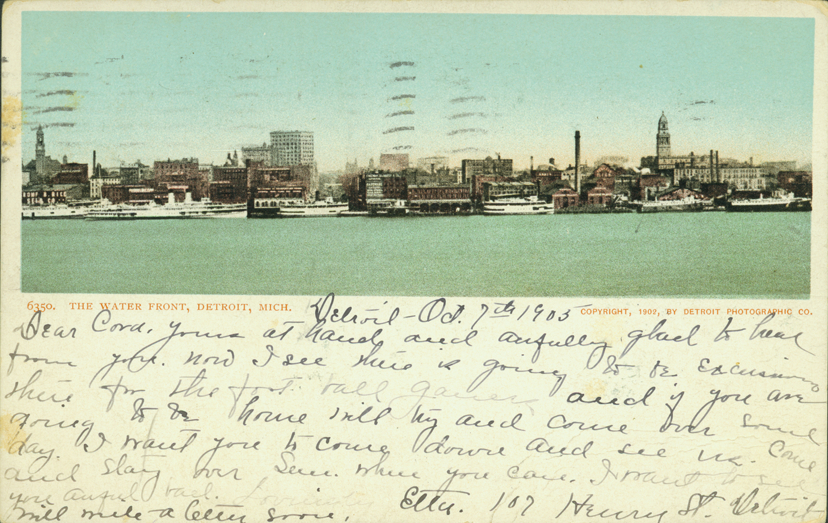 6350. THE WATER FRONT, DETROIT, MICH.
COPYRIGHT, 1902, BY DETROIT PHOTOGRAPHIC CO.
Detroit - Oct. 7th 1905
Dear Cora, yours at hand and awfully glad to hear
from you. now I see there is going to be Excursions
for the foot ball games and if you are
going to be home will try and come over some
day. I want you to come down and see us. Come
and stay over Sun. when you can. I want to see
you awful bad.
will write a letter soon. Etta. 107 Henry St. Detroit